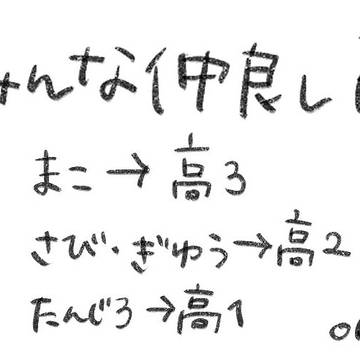 みんな仲良し
まこ→高3
さび・ぎゆう→高2
たんじろ→高1